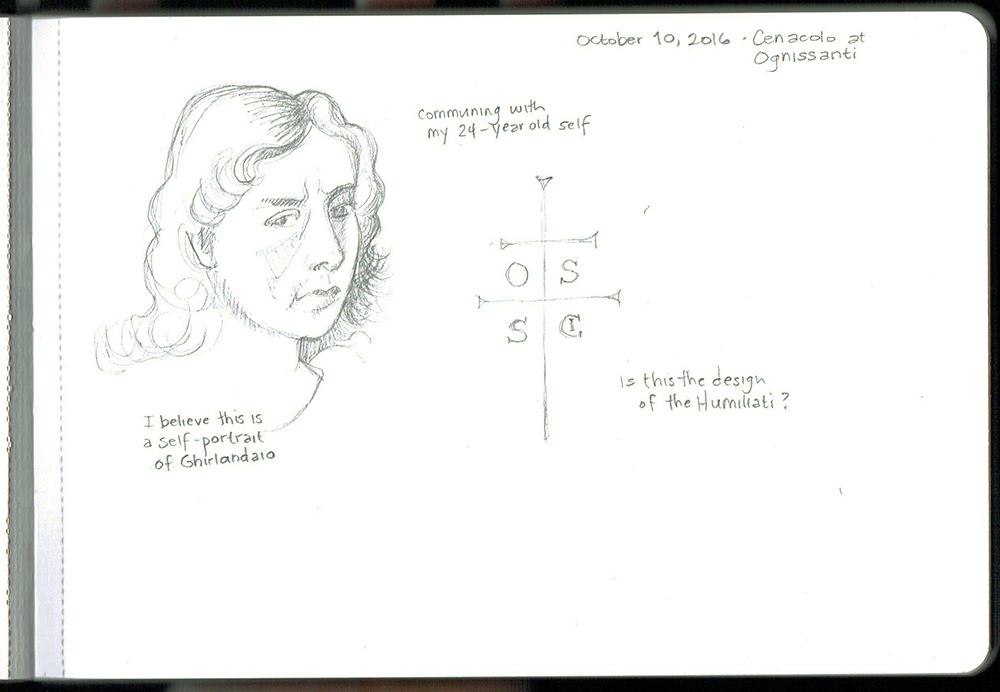 October 10, 2016 · Cenacolo at
Ognissanti
Communing with
my 24-year old self
O S
S C
Is this the design
of the Humiliati?
I believe this is
a self-portrait
of Ghirlandaio